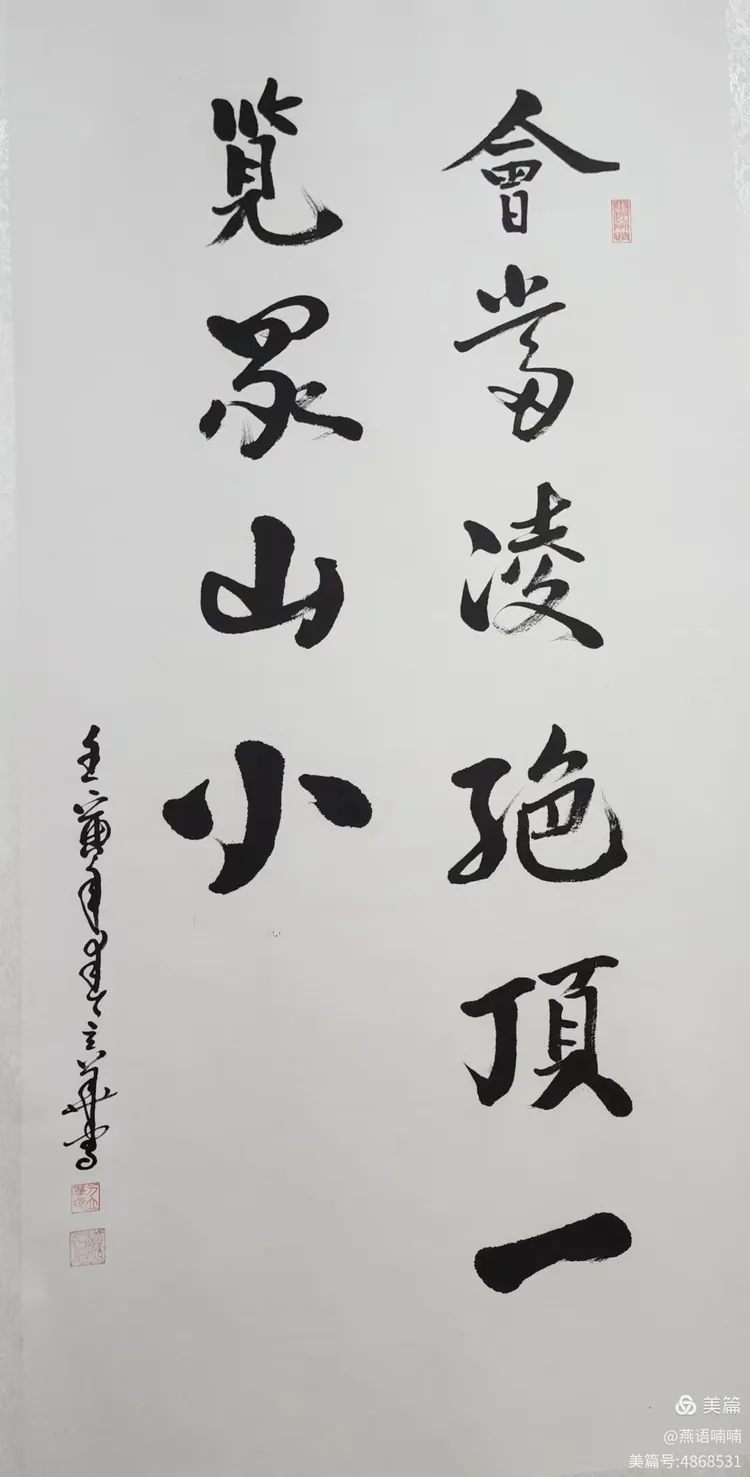 會當凌絕頂一
覽眾山小
壬寅年
美篇
@燕语喃喃
美篇号:4868531